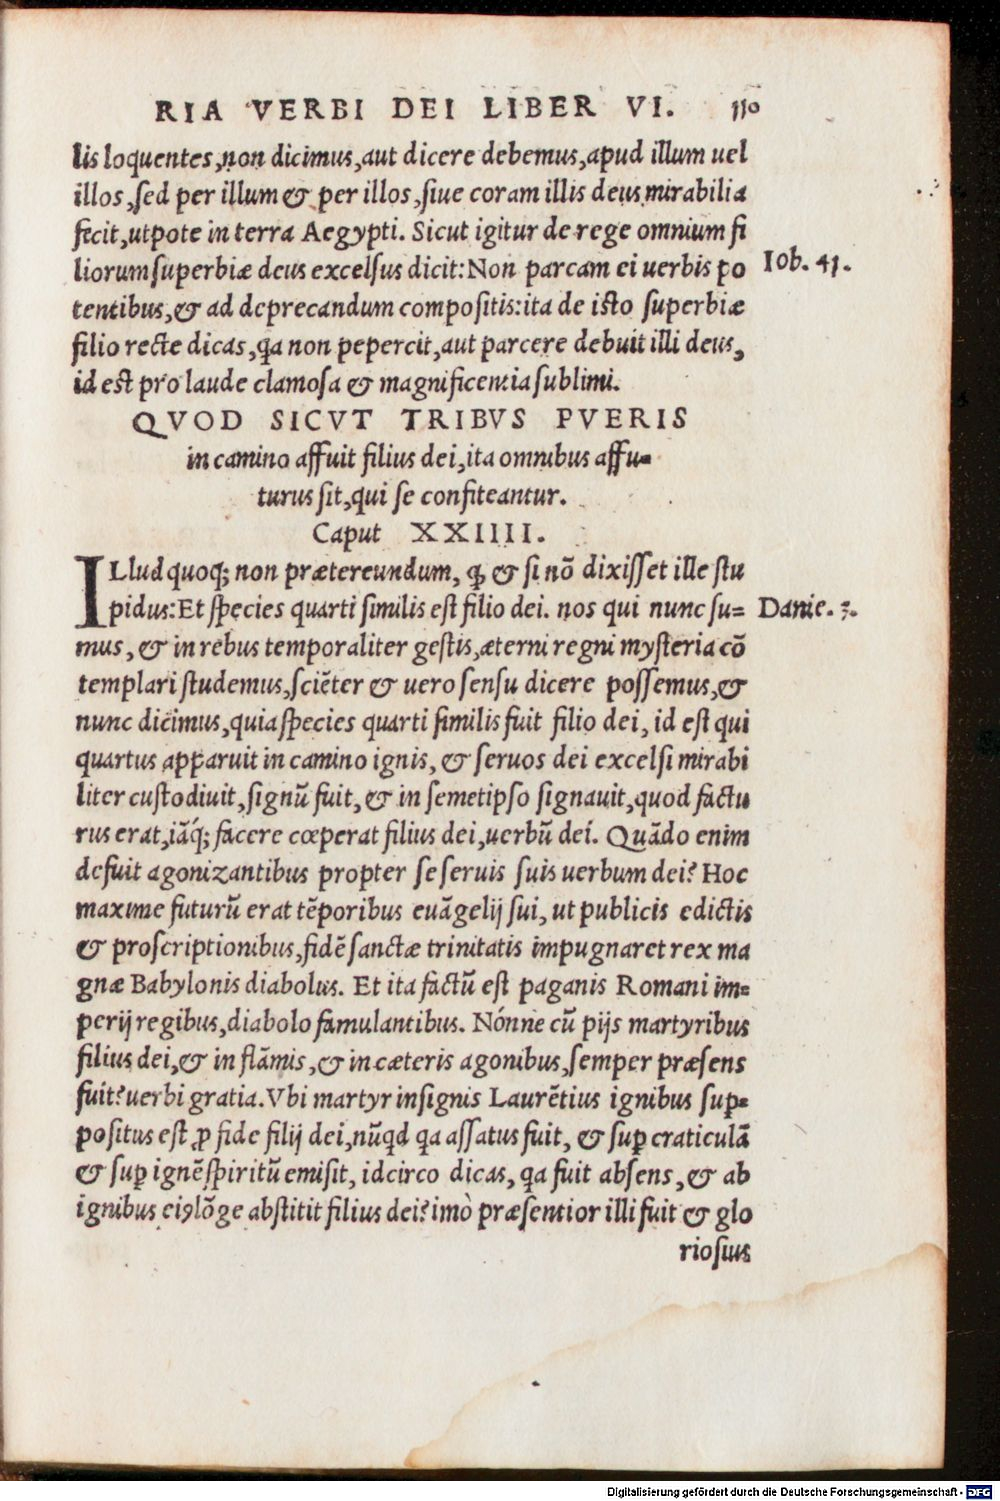 RIA VERBI DEI LIBER VI. 110
lis loquentes, non dicimus, aut dicere debemus, apud illum uel
illos, sed per illum & per illos, siue coram illis deus mirabilia
fecit, utpote in terra Aegypti. Sicut igitur de rege omnium fi
liorum superbiæ deus excelsus dicit: Non parcam ei uerbis po
Iob. 41.
tentibus, & ad deprecandum compositis: ita de isto superbiæ
filio recte dicas, qa non pepercit, aut parcere debuit illi deus,
id est pro laude clamosa & magnificentia sublimi.
QVOD SICVT TRIBVS PVERIS
in camino affuit filius dei, ita omnibus affu-
turus sit, qui se confiteantur.
Caput XXIIII.
ILlud quoq; non prætereundum, ꝙ, & si nō dixisset ille stu
pidus: Et species quarti similis est filio dei. nos qui nunc su=
Danie. 3.
mus, & in rebus temporaliter gestis, æterni regni mysteria cō
templari studemus, sciēter & uero sensu dicere possemus, &
nunc dicimus, quia species quarti similis fuit filio dei, id est qui
quartus apparuit in camino ignis, & seruos dei excelsi mirabi
liter custodiuit, signū fuit, & in semetipso signauit, quod factu
rus erat, iāq́; facere cœperat filius dei, uerbū deí. Quādo enim
defuit agonizantibus propter se seruis suis uerbum dei? Hoc
maxime futurū erat tēporibus euāgelij sui, ut publicis edictis
& proscriptionibus, fidē sanctæ trinitatis impugnaret rex ma
gnæ Babylonis diabolus. Et ita factū est paganis Romani im=
perij regibus, diabolo famulantibus. Nónne cū pijs martyribus
filius dei, & in flāmis, & in cæteris agonibus, semper præsens
fuit? uerbi gratia. Vbi martyr insignis Laurētius ignibus sup=
positus est ꝓ fide filij dei, nūqd qa assatus fuit, & suꝑ craticulā
& suꝑ ignē spiritū emisit, idcirco dicas, qa fuit absens, & ab
ignibus eiꝰ lōge abstitit filius dei? imò præsentior illi fuit & glo
riosius
Digitalisierung gefördert durch die Deutsche Forschungsgemeinschaft - DFG